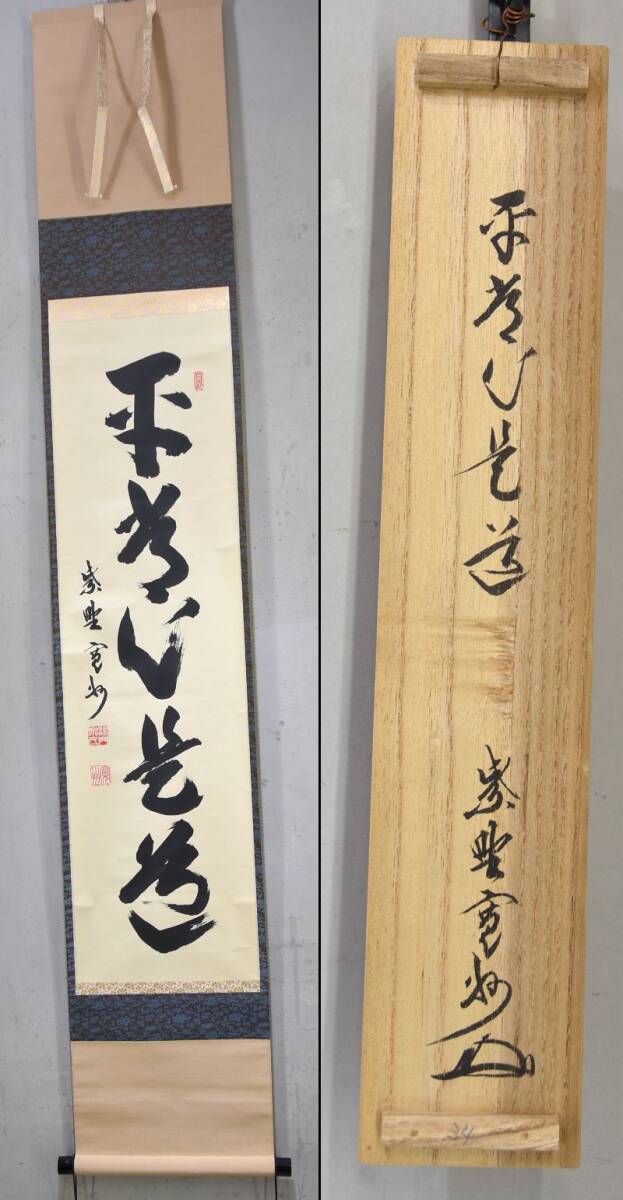 平常心是道
紫野寛州
平常心是道
紫野寛州
24